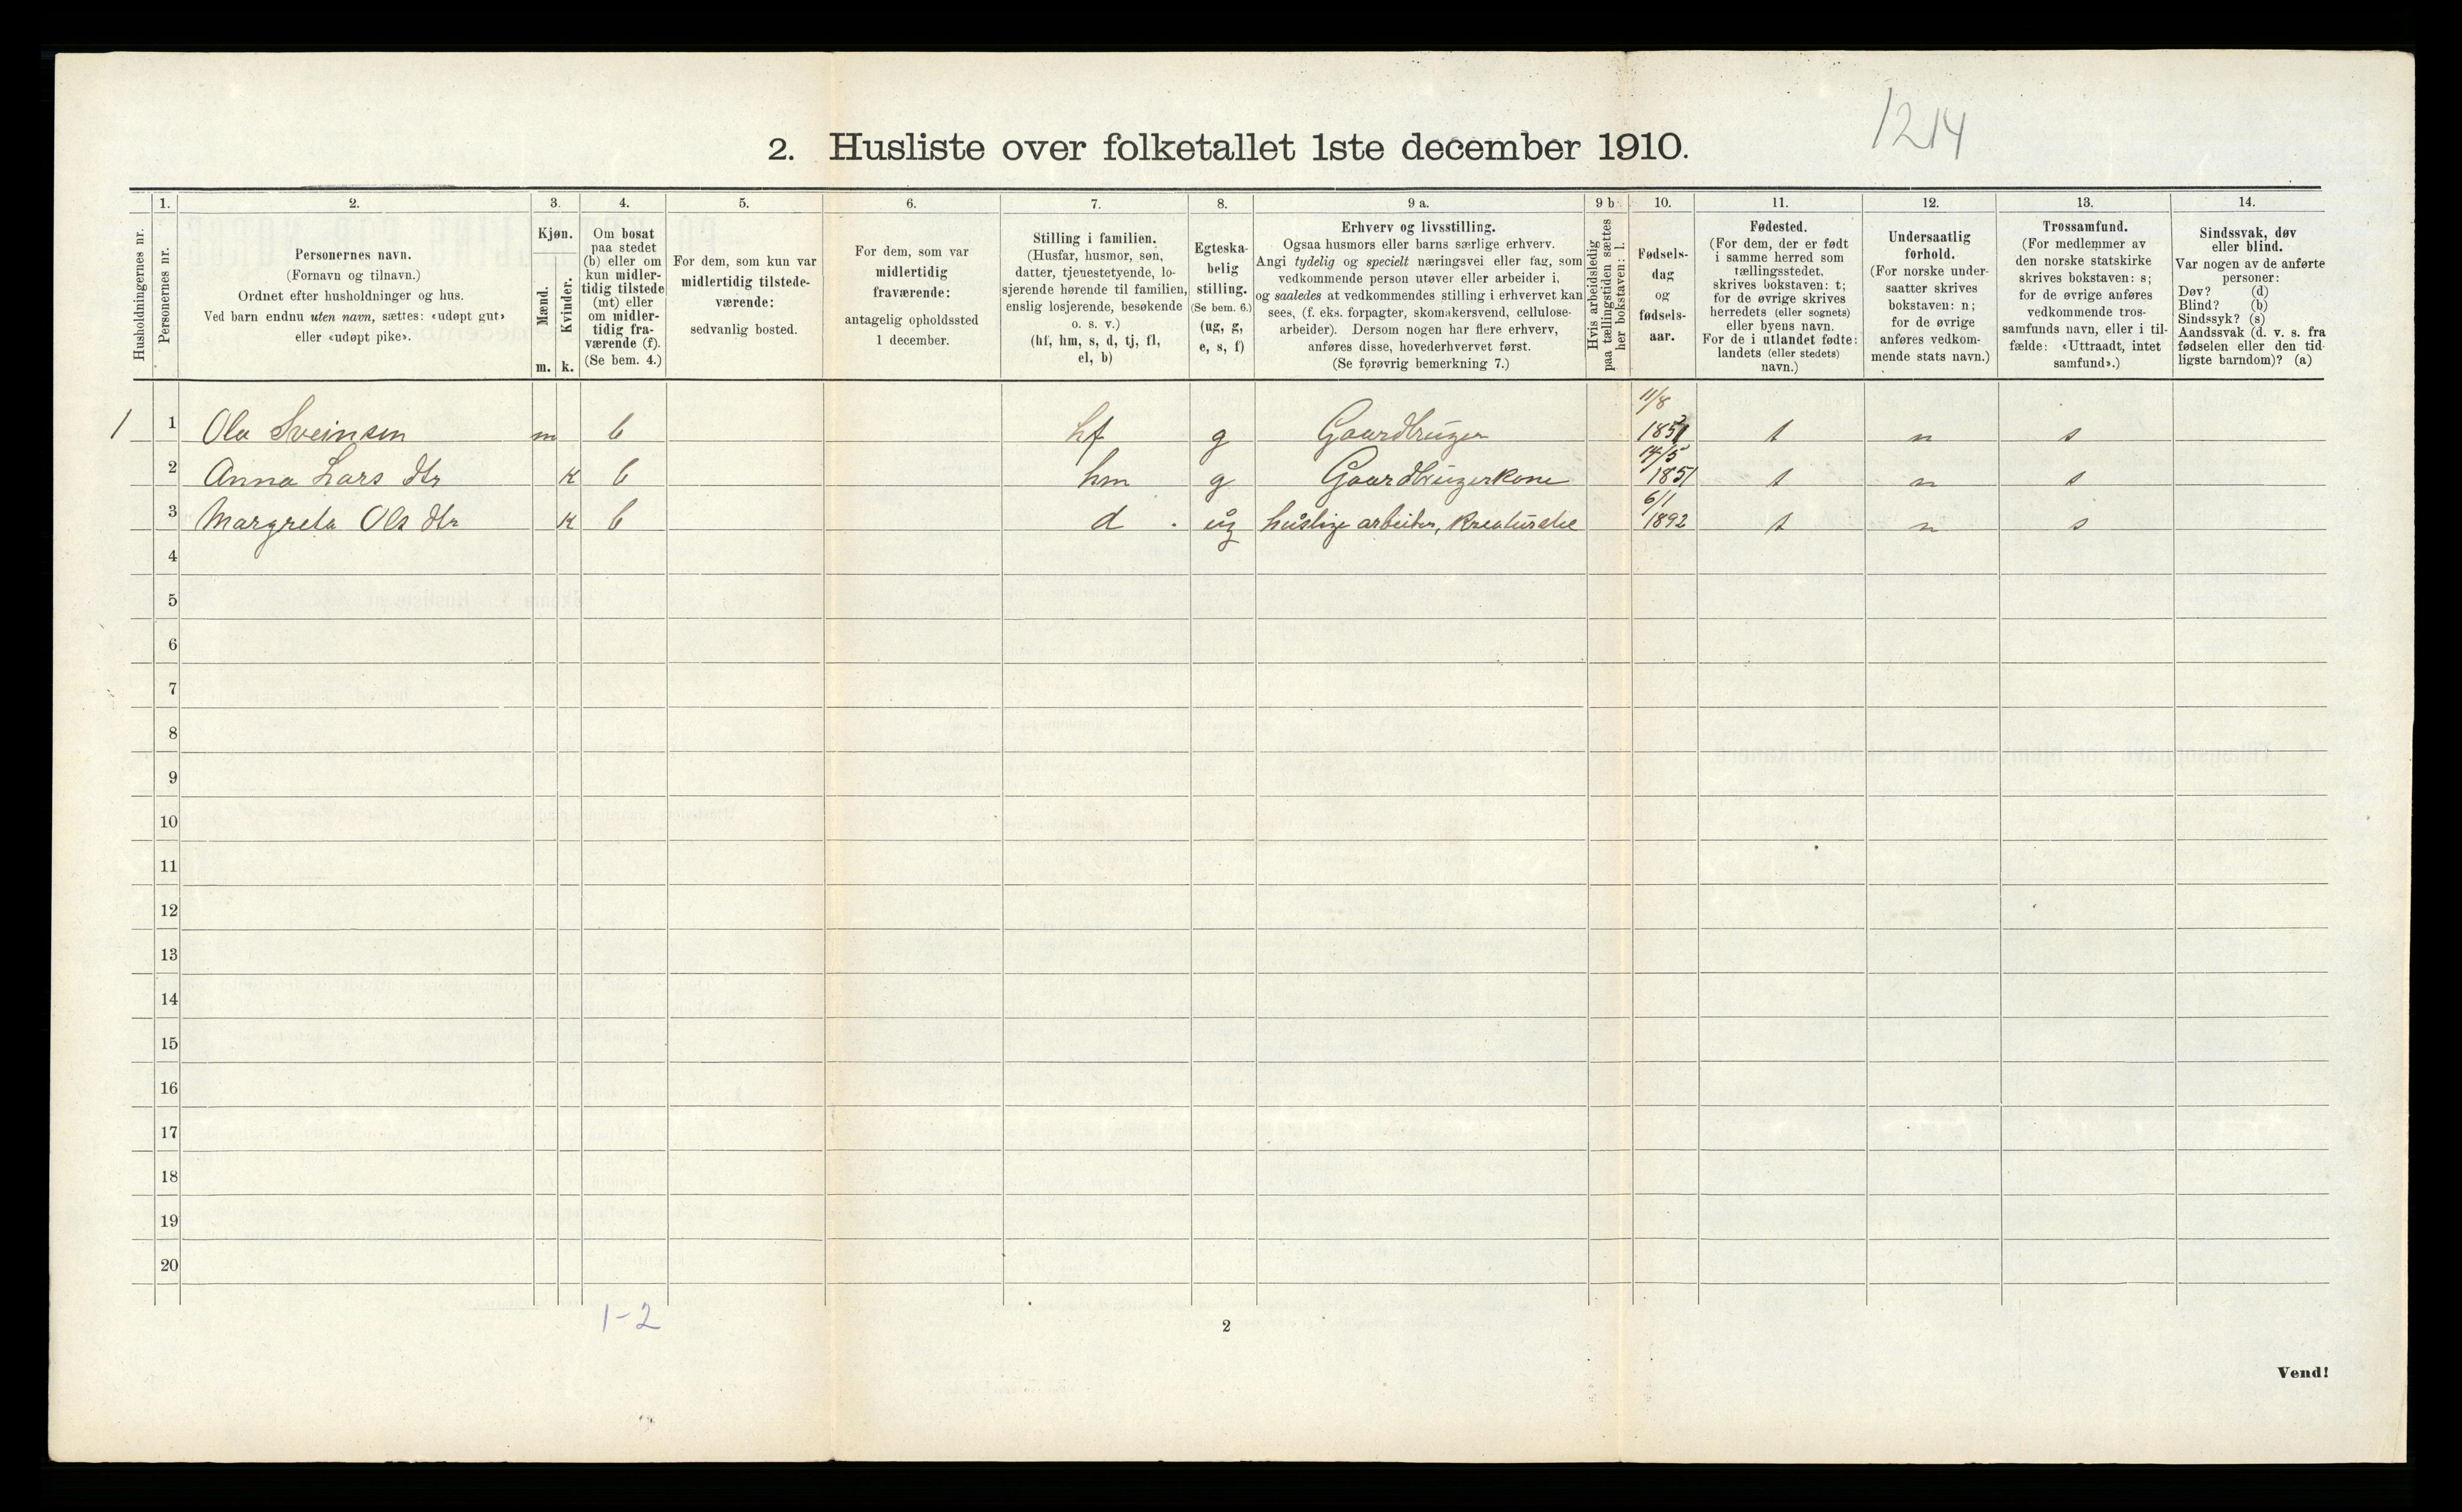 1214
2. Husliste over folketallet 1ste december 1910.
Husholdningernes nr.
1.
Personernes nr.
2.
Personernes navn.
(Fornavn og tilnavn.)
Ordnet efter husholdninger og hus.
Ved barn endnu uten navn, sættes: «udøpt gut»
eller «udøpt pike».
3.
Kjøn.
Mænd.
Kvinder.
m. k.
4.
Om bosat
paa stedet
(b) eller om
kun midler-
tidig tilstede
(mt) eller
om midler-
tidig fra-
værende (f).
(Se bem. 4.)
5.
For dem, som kun var
midlertidig tilstede-
værende:
sedvanlig bosted.
6.
For dem, som var
midlertidig
fraværende:
antagelig opholdssted
1 december.
7.
Stilling i familien.
(Husfar, husmor, søn,
datter, tjenestetyende, lo-
sjerende hørende til familien,
enslig losjerende, besøkende
o. s. v.)
(hf, hm, s, d, tj, fl,
el, b)
8.
Egteska-
belig
stilling.
(Se bem. 6.)
(ug, g,
e, s, f)
9 a.
Erhverv og livsstilling.
Ogsaa husmors eller barns særlige erhverv.
Angi tydelig og specielt næringsvei eller fag, som
vedkommende person utøver eller arbeider i,
og saaledes at vedkommendes stilling i erhvervet kan
sees, (f. eks. forpagter, skomakersvend, cellulose-
arbeider). Dersom nogen har flere erhverv,
anføres disse, hovederhvervet først.
(Se forøvrig bemerkning 7.)
9 b
Hvis arbeidsledig
paa tællingstiden sættes
her bokstaven: l.
10.
Fødsels-
dag
og
fødsels-
aar.
11.
Fødested.
(For dem, der er født
i samme herred som
tællingsstedet,
skrives bokstaven: t;
for de øvrige skrives
herredets (eller sognets)
eller byens navn.
For de i utlandet fødte:
landets (eller stedets)
navn.)
12.
Undersaatlig
forhold.
(For norske under-
saatter skrives
bokstaven: n;
for de øvrige
anføres vedkom-
mende stats navn.)
13.
Trossamfund.
(For medlemmer av
den norske statskirke
skrives bokstaven: s;
for de øvrige anføres
vedkommende tros-
samfunds navn, eller i til-
fælde: «Uttraadt, intet
samfund».)
14.
Sindssvak, døv
eller blind.
Var nogen av de anførte
personer:
Døv? (d)
Blind? (b)
Sindssyk? (s)
Aandssvak (d. v. s. fra
fødselen eller den tid-
ligste barndom)? (a)
11/8
1 1 Ola Sveinsen m b hf g Gaardbruger t n s
14/5
2 Anna Lars dtr k b hm g Gaardbrugerkone 1851 t n s
6/1
3 Margreta Ols dtr k b d . ug huslige arbeider, kreaturstel 1892 t n s
4
5
6
7
8
9
10
11
12
13
14
15
16
17
18
19
20
1-2
2
Vend!